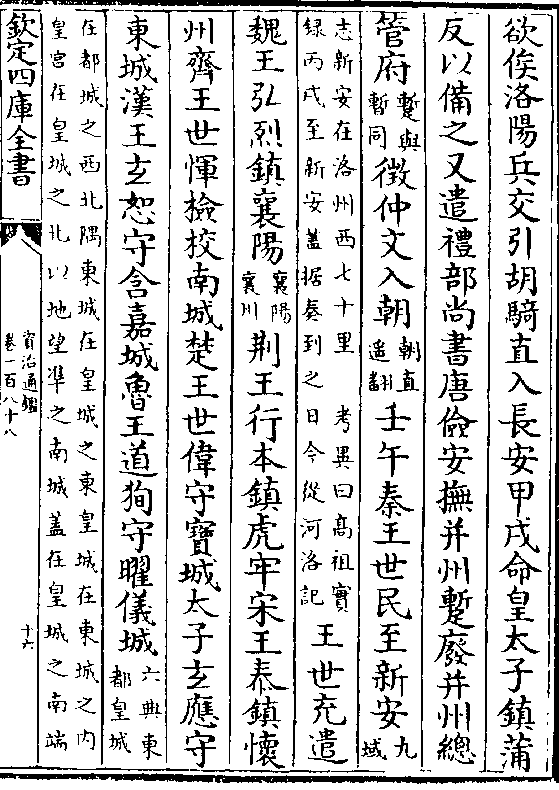 欲俟洛陽兵交引胡騎直入長安甲戌命皇太子鎮蒲
反以備之又遣禮部尚書唐儉安撫并州蹔廢并州總
管府蹔與暫同徵仲文入朝朝直遥翻壬午秦王世民至新安九域
志新安在洛州西七十里　考異曰髙祖實
録丙戌至新安蓋据奏到之日今從河洛記王世充遣
魏王弘烈鎮襄陽襄陽襄州荆王行本鎮虎牢宋王泰鎮懷
州齊王世惲撿校南城楚王世偉守寶城太子玄應守
東城漢王玄恕守含嘉城魯王道狥守曜儀城六典東都皇城
在都城之西北隅東城在皇城之東皇城在東城之内
皇宫在皇城之北以地望準之南城蓋在皇城之南端
欽定四庫全書
資治通鑑
卷一百八十八
十六